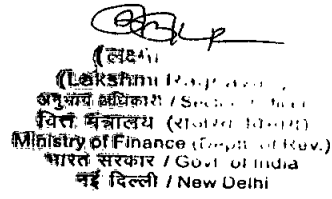 (लक्ष्मी
(Lakshmi
अनुभाग अधिकारी / Section
वित्त मंत्रालय (राजस्व विभाग)
Ministry of Finance (Deptt. of Rev.)
भारत सरकार / Govt of India
नई दिल्ली / New Delhi